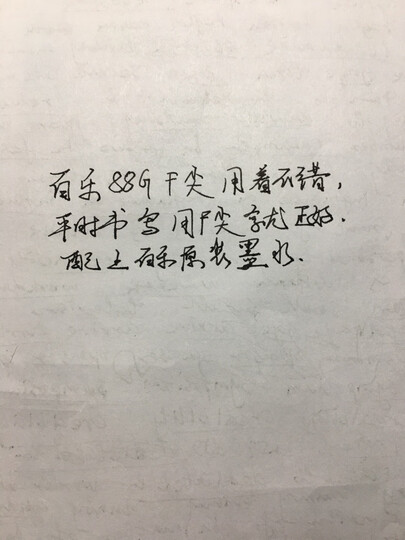 百乐88G F尖用着不错，
平时书写用F尖就正好.
配上百乐原装墨水.